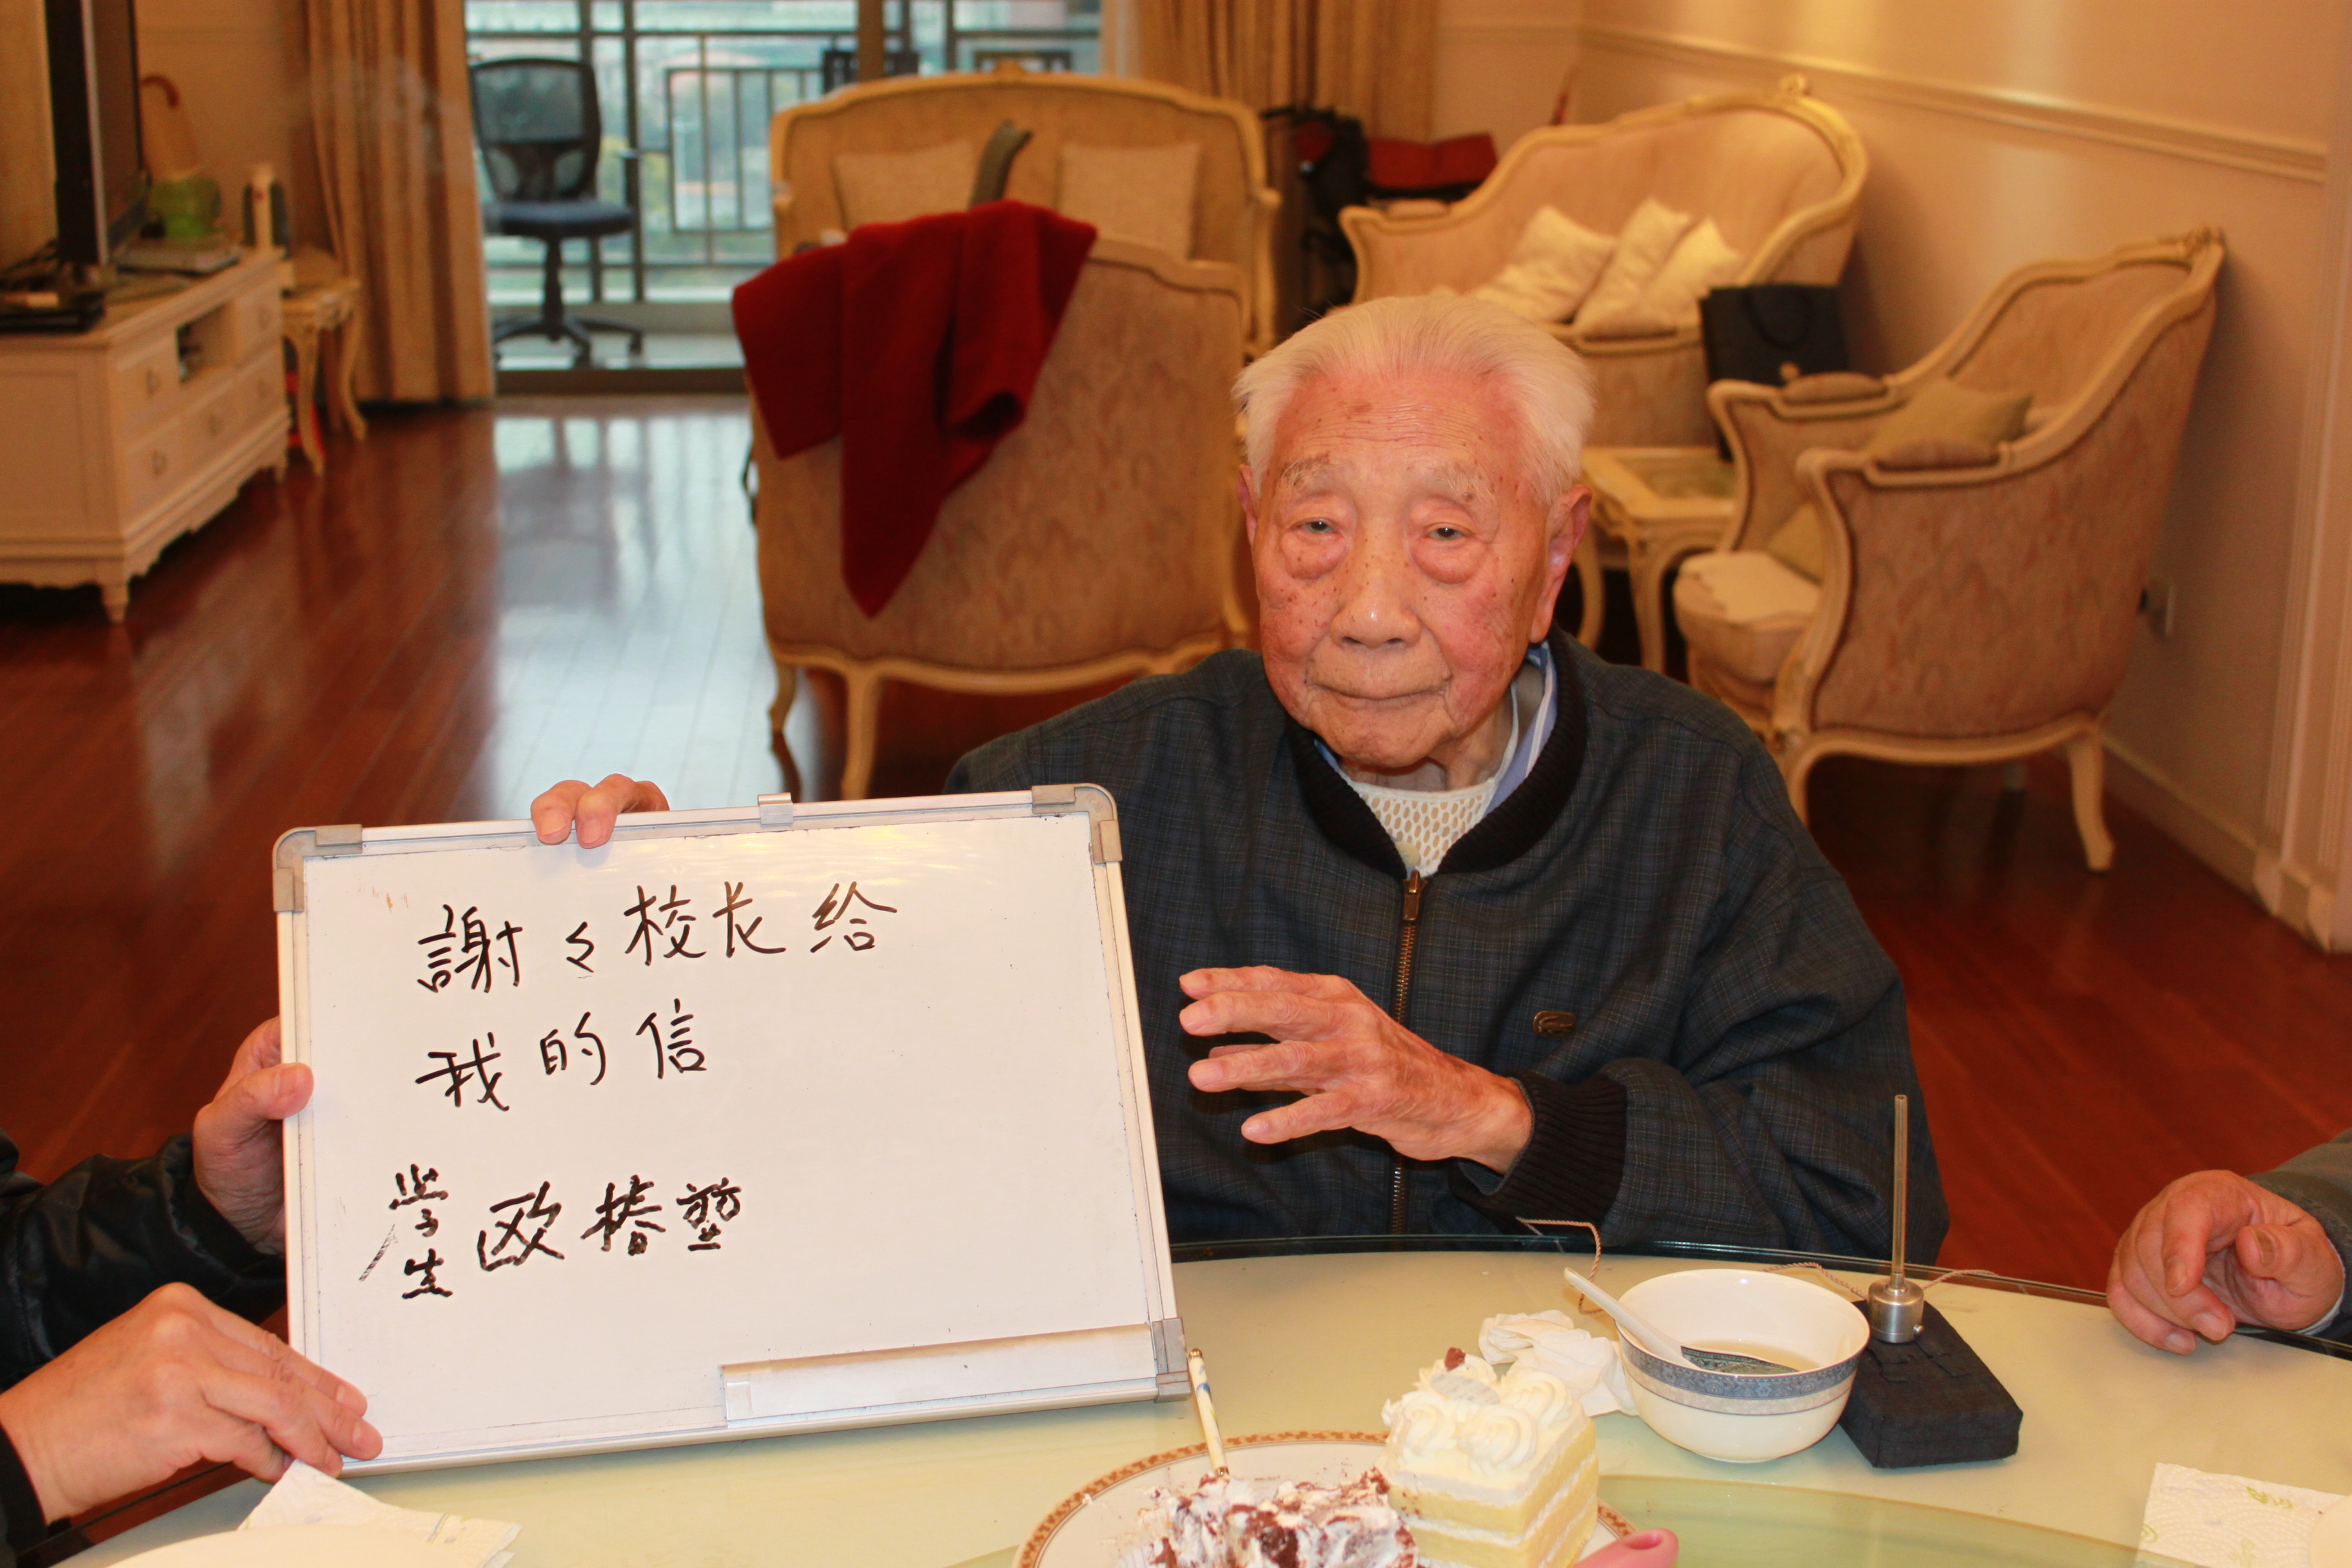 謝々校长给
我的信
學生 欧椿塑